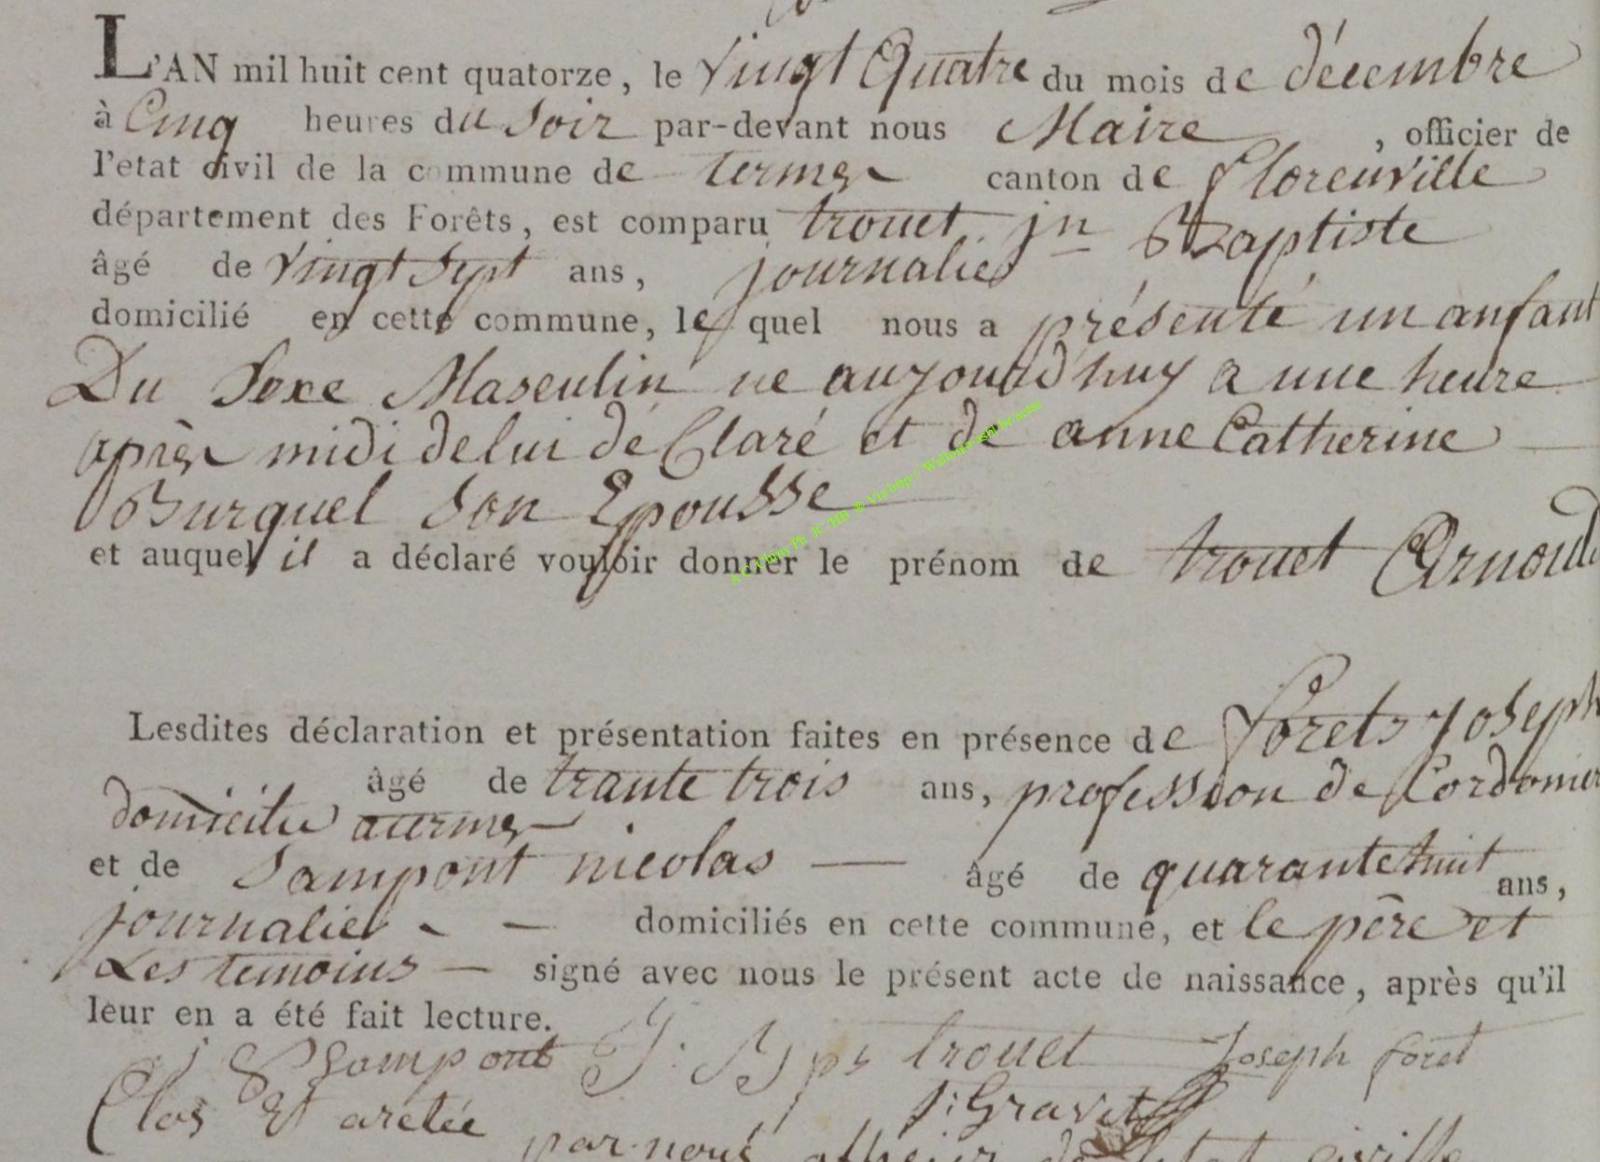 L'AN mil huit cent quatorze, le vingt Quatre du mois de décembre
à Cinq heures du soir par-devant nous Maire, officier de
l'etat civil de la commune de termes canton de florenville
département des Forêts, est comparu trouet jn Baptiste
âgé de vingt sept ans, journalier
domicilié en cette commune, lequel nous a présenté un anfant
Du Sexe Masculin ne aujourd'huy a une heure
après midi de lui de Claré et de anne Catherine
Burquel son Epousse
et auquel il a déclaré vouloir donner le prénom de trouet Arnould
Lesdites déclaration et présentation faites en présence de forets Joseph
âgé de trante trois ans, profession de Cordonier
domicilie a termes
et de Sampont nicolas — âgé de quarante huit ans,
journalier - — domiciliés en cette commune, et le père et
Les temoins — signé avec nous le présent acte de naissance, après qu'il
leur en a été fait lecture.
Sampont J: Bps trouet Joseph foret
J: Gravet
Clos Et aretée par nous de l'etat civille